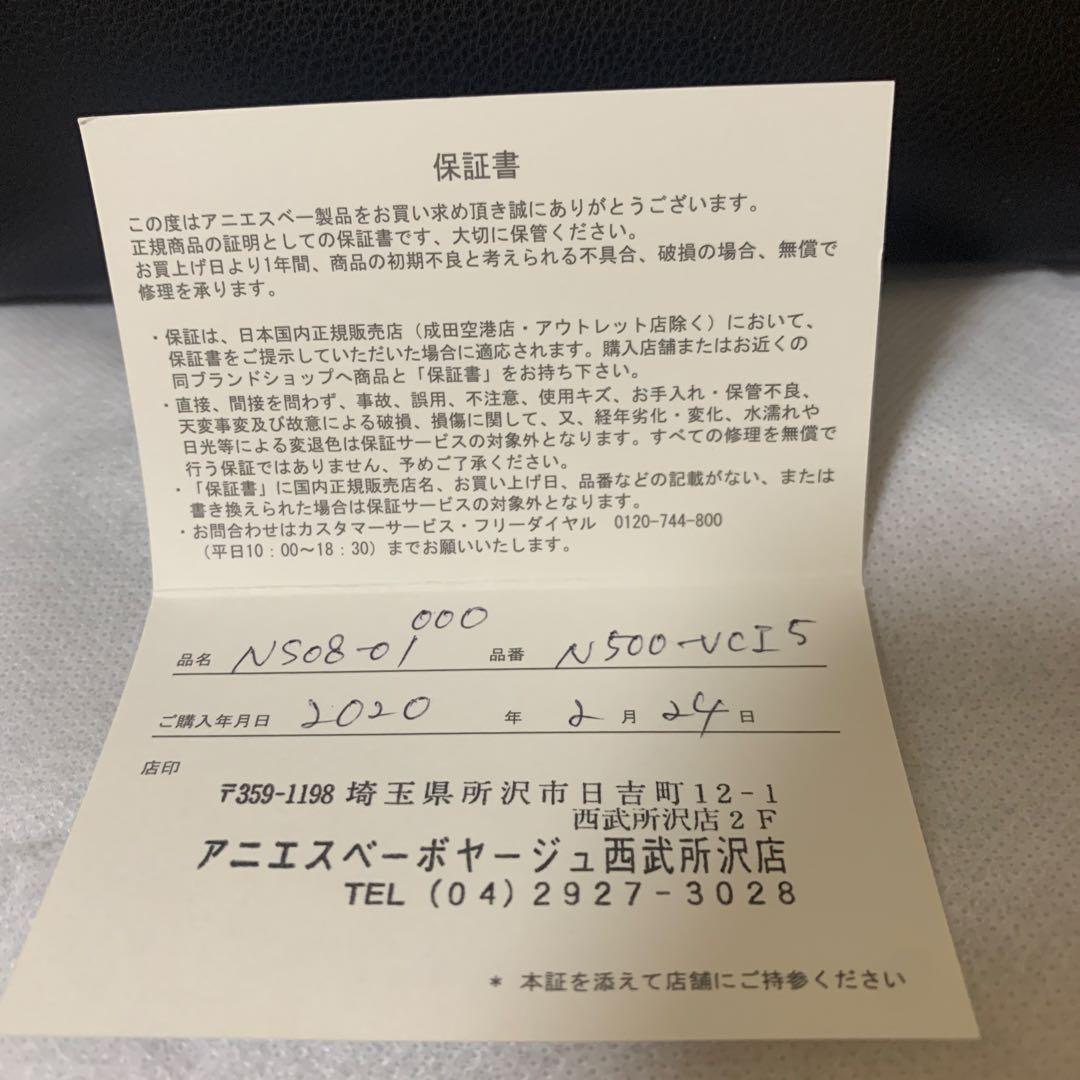 保証書
この度はアニエスベー製品をお買い求め頂き誠にありがとうございます。
正規商品の証明としての保証書です、大切に保管ください。
お買上げ日より1年間、商品の初期不良と考えられる不具合、破損の場合、無償で
修理を承ります。
・保証は、日本国内正規販売店（成田空港店・アウトレット店除く）において、
保証書をご提示していただいた場合に適応されます。購入店舗またはお近くの
同ブランドショップへ商品と「保証書」をお持ち下さい。
・直接、間接を問わず、事故、誤用、不注意、使用キズ、お手入れ・保管不良、
天変事変及び故意による破損、損傷に関して、又、経年劣化・変化、水濡れや
日光等による変退色は保証サービスの対象外となります。すべての修理を無償で
行う保証ではありません、予めご了承ください。
・「保証書」に国内正規販売店名、お買い上げ日、品番などの記載がない、または
書き換えられた場合は保証サービスの対象外となります。
・お問合わせはカスタマーサービス・フリーダイヤル 0120-744-800
（平日10：00～18：30）までお願いいたします。
000
品名 NS08-01 品番 N500-VCI5
ご購入年月日 2020 年 2 月 24 日
店印
〒359-1198 埼玉県所沢市日吉町12-1
西武所沢店2F
アニエスベーボヤージュ西武所沢店
TEL (04)2927-3028
* 本証を添えて店舗にご持参ください